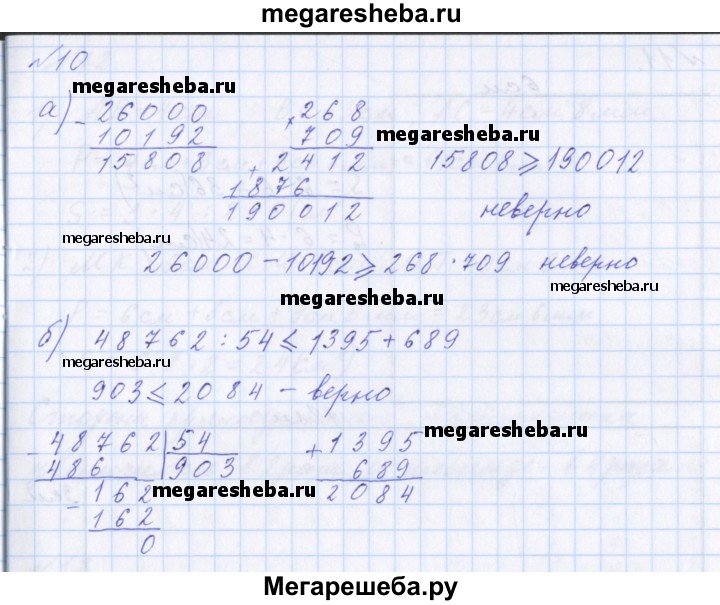 megaresheba.ru
№10
megaresheba.ru
а) - 26000 × 268
10192 709 megaresheba.ru
15808 + 2412 15808 ⩾ 190012
1876
190012 неверно
megaresheba.ru
26000 - 10192 ⩾ 268 · 709 неверно
megaresheba.ru megaresheba.ru
б) 48762 : 54 ⩽ 1395 + 689
megaresheba.ru
903 ⩽ 2084 - верно
- 48762 | 54 + 1395 megaresheba.ru
486 903 689
- 162 megaresheba.ru 2084
162
0
Мегарешеба.ру